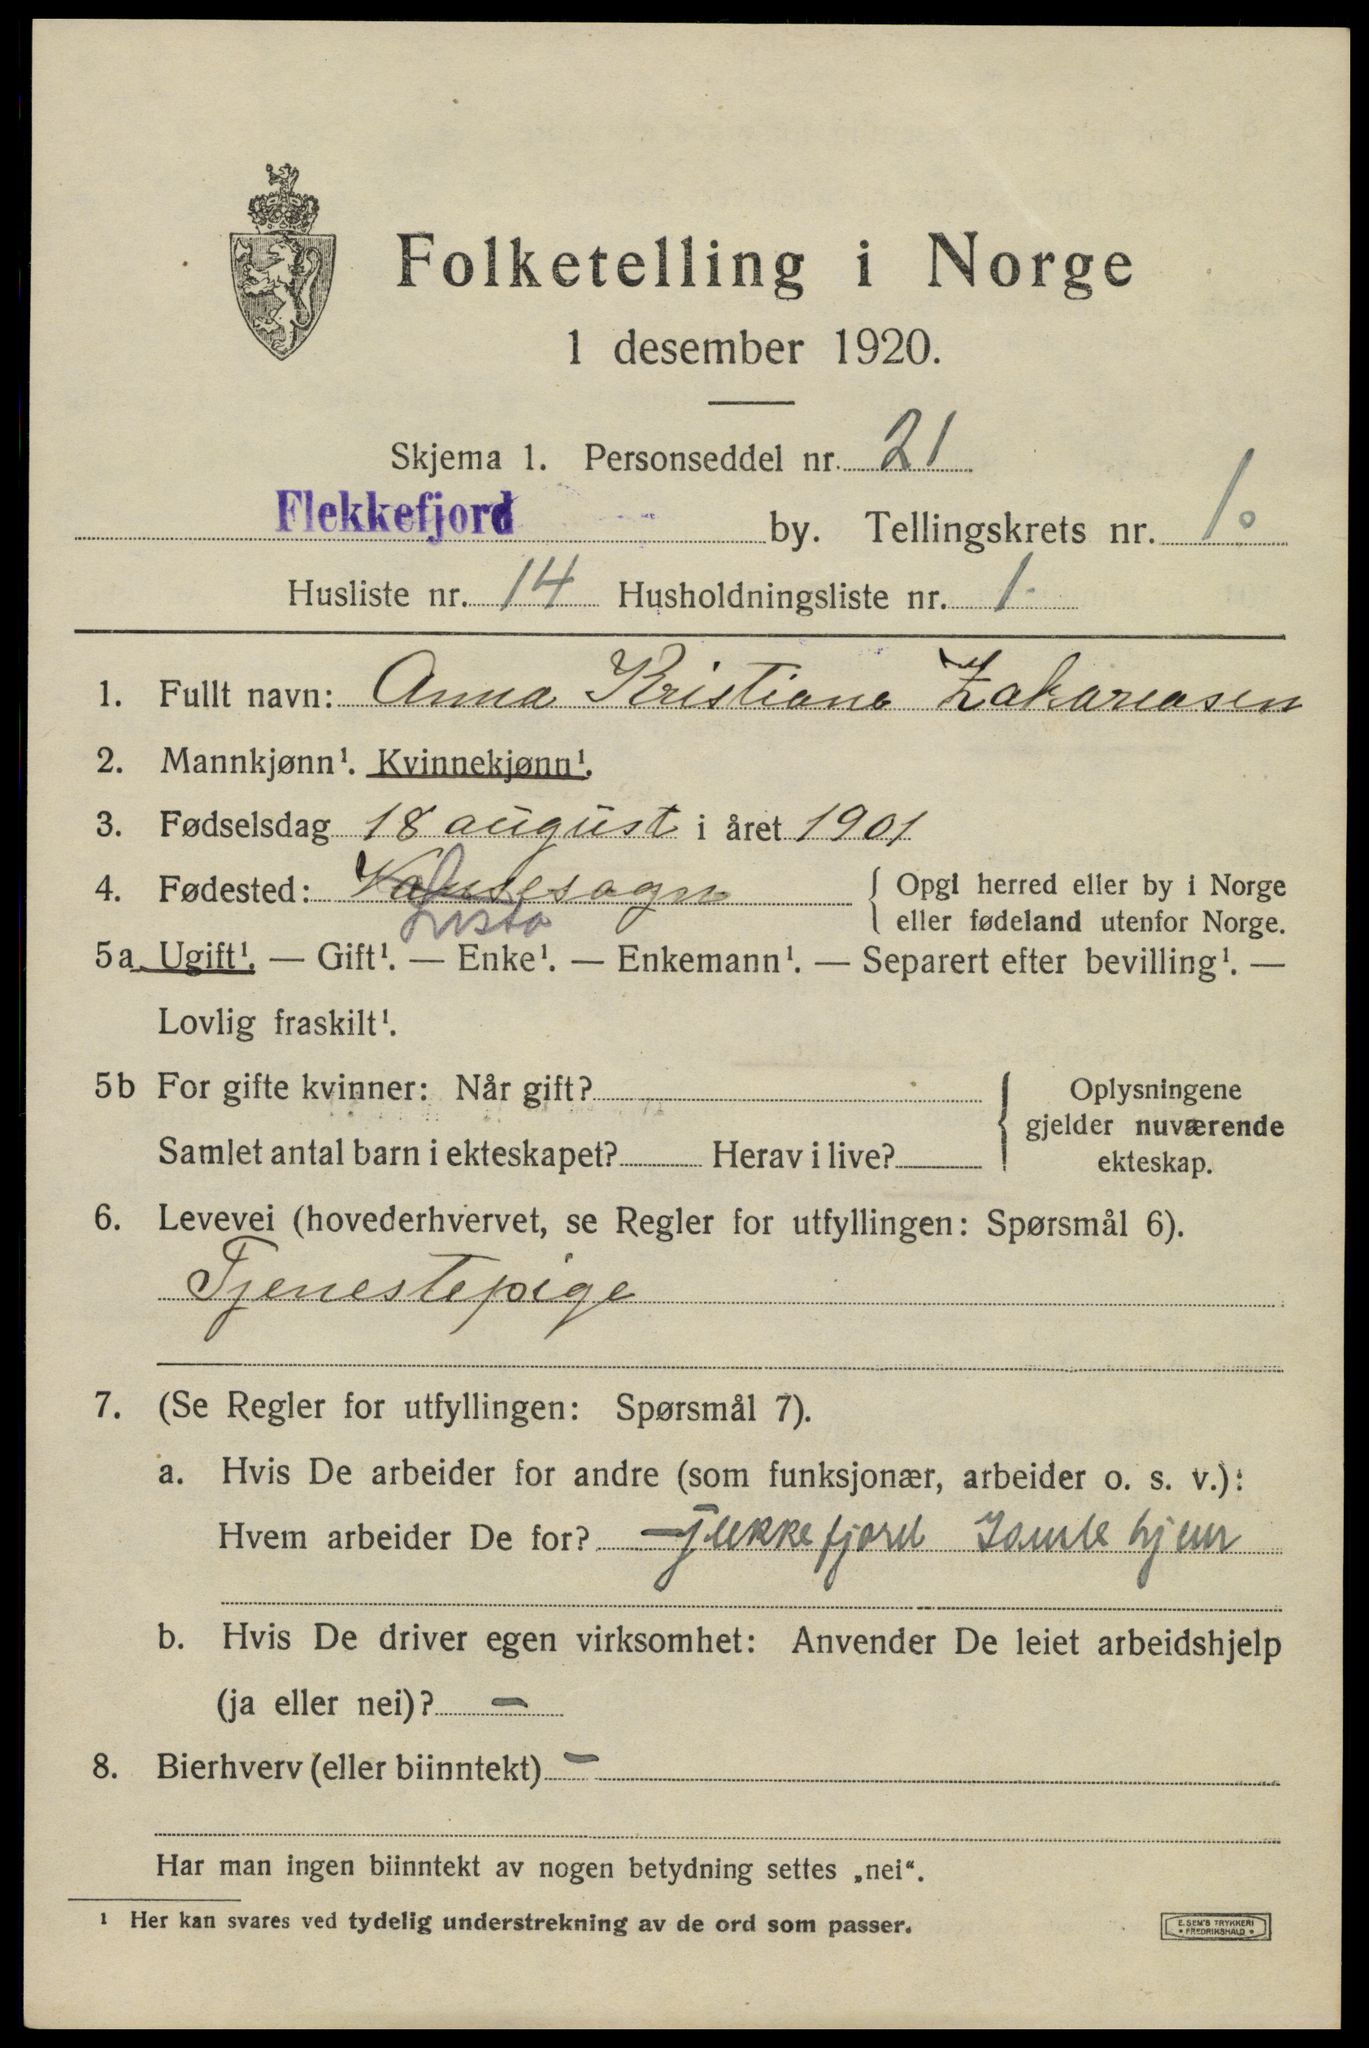 Folketelling i Norge
1 desember 1920.
Skjema 1. Personseddel nr. 21
Flekkefjord by. Tellingskrets nr. 1.
Husliste nr. 14 Husholdningsliste nr. 1.
1. Fullt navn: Anna Kristiane Zakariasen
2. Mannkjønn¹. Kvinnekjønn¹.
3. Fødselsdag 18 august i året 1901
4. Fødested: Vansesogn { Opgi herred eller by i Norge
Lista { eller fødeland utenfor Norge.
5a Ugift¹. — Gift¹. — Enke¹. — Enkemann¹. — Separert efter bevilling¹. —
Lovlig fraskilt¹.
5b For gifte kvinner: Når gift? { Oplysningene
gjelder nuværende
Samlet antal barn i ekteskapet? Herav i live? ekteskap.
6. Levevei (hovederhvervet, se Regler for utfyllingen: Spørsmål 6).
Tjenestepige
7. (Se Regler for utfyllingen: Spørsmål 7).
a. Hvis De arbeider for andre (som funksjonær, arbeider o. s. v.):
Hvem arbeider De for? Flekkefjord Gamle hjem
b. Hvis De driver egen virksomhet: Anvender De leiet arbeidshjelp
(ja eller nei)? —
8. Bierhverv (eller biinntekt) —
Har man ingen biinntekt av nogen betydning settes „nei“.
¹ Her kan svares ved tydelig understrekning av de ord som passer.
E. SEM'S TRYKKERI
• FREDRIKSHALD •